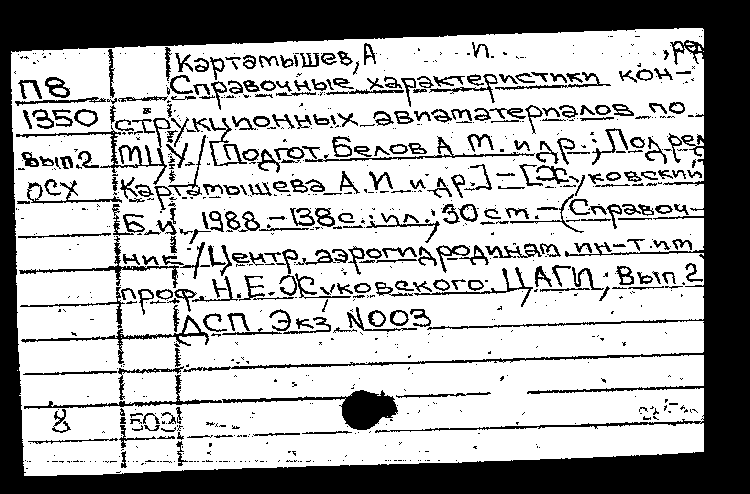 Картамышев, А И. , ред
П8 Справочные характеристики кон-
1350 струкционных авиаматериалов по
Вып.2 МЦУ / [Подгот. Белов А М. и др.; Под ред
ОСХ Картамышева А. И и др.] - [Жуковский
Б. и., 1988. - 138с.: ил.; 30 см. - (Справоч-
ник / Центр. аэрогидродинам. ин-т им.
проф. Н. Е. Жуковского. ЦАГИ; Вып. 2
ДСП. Экз. N003
8 503